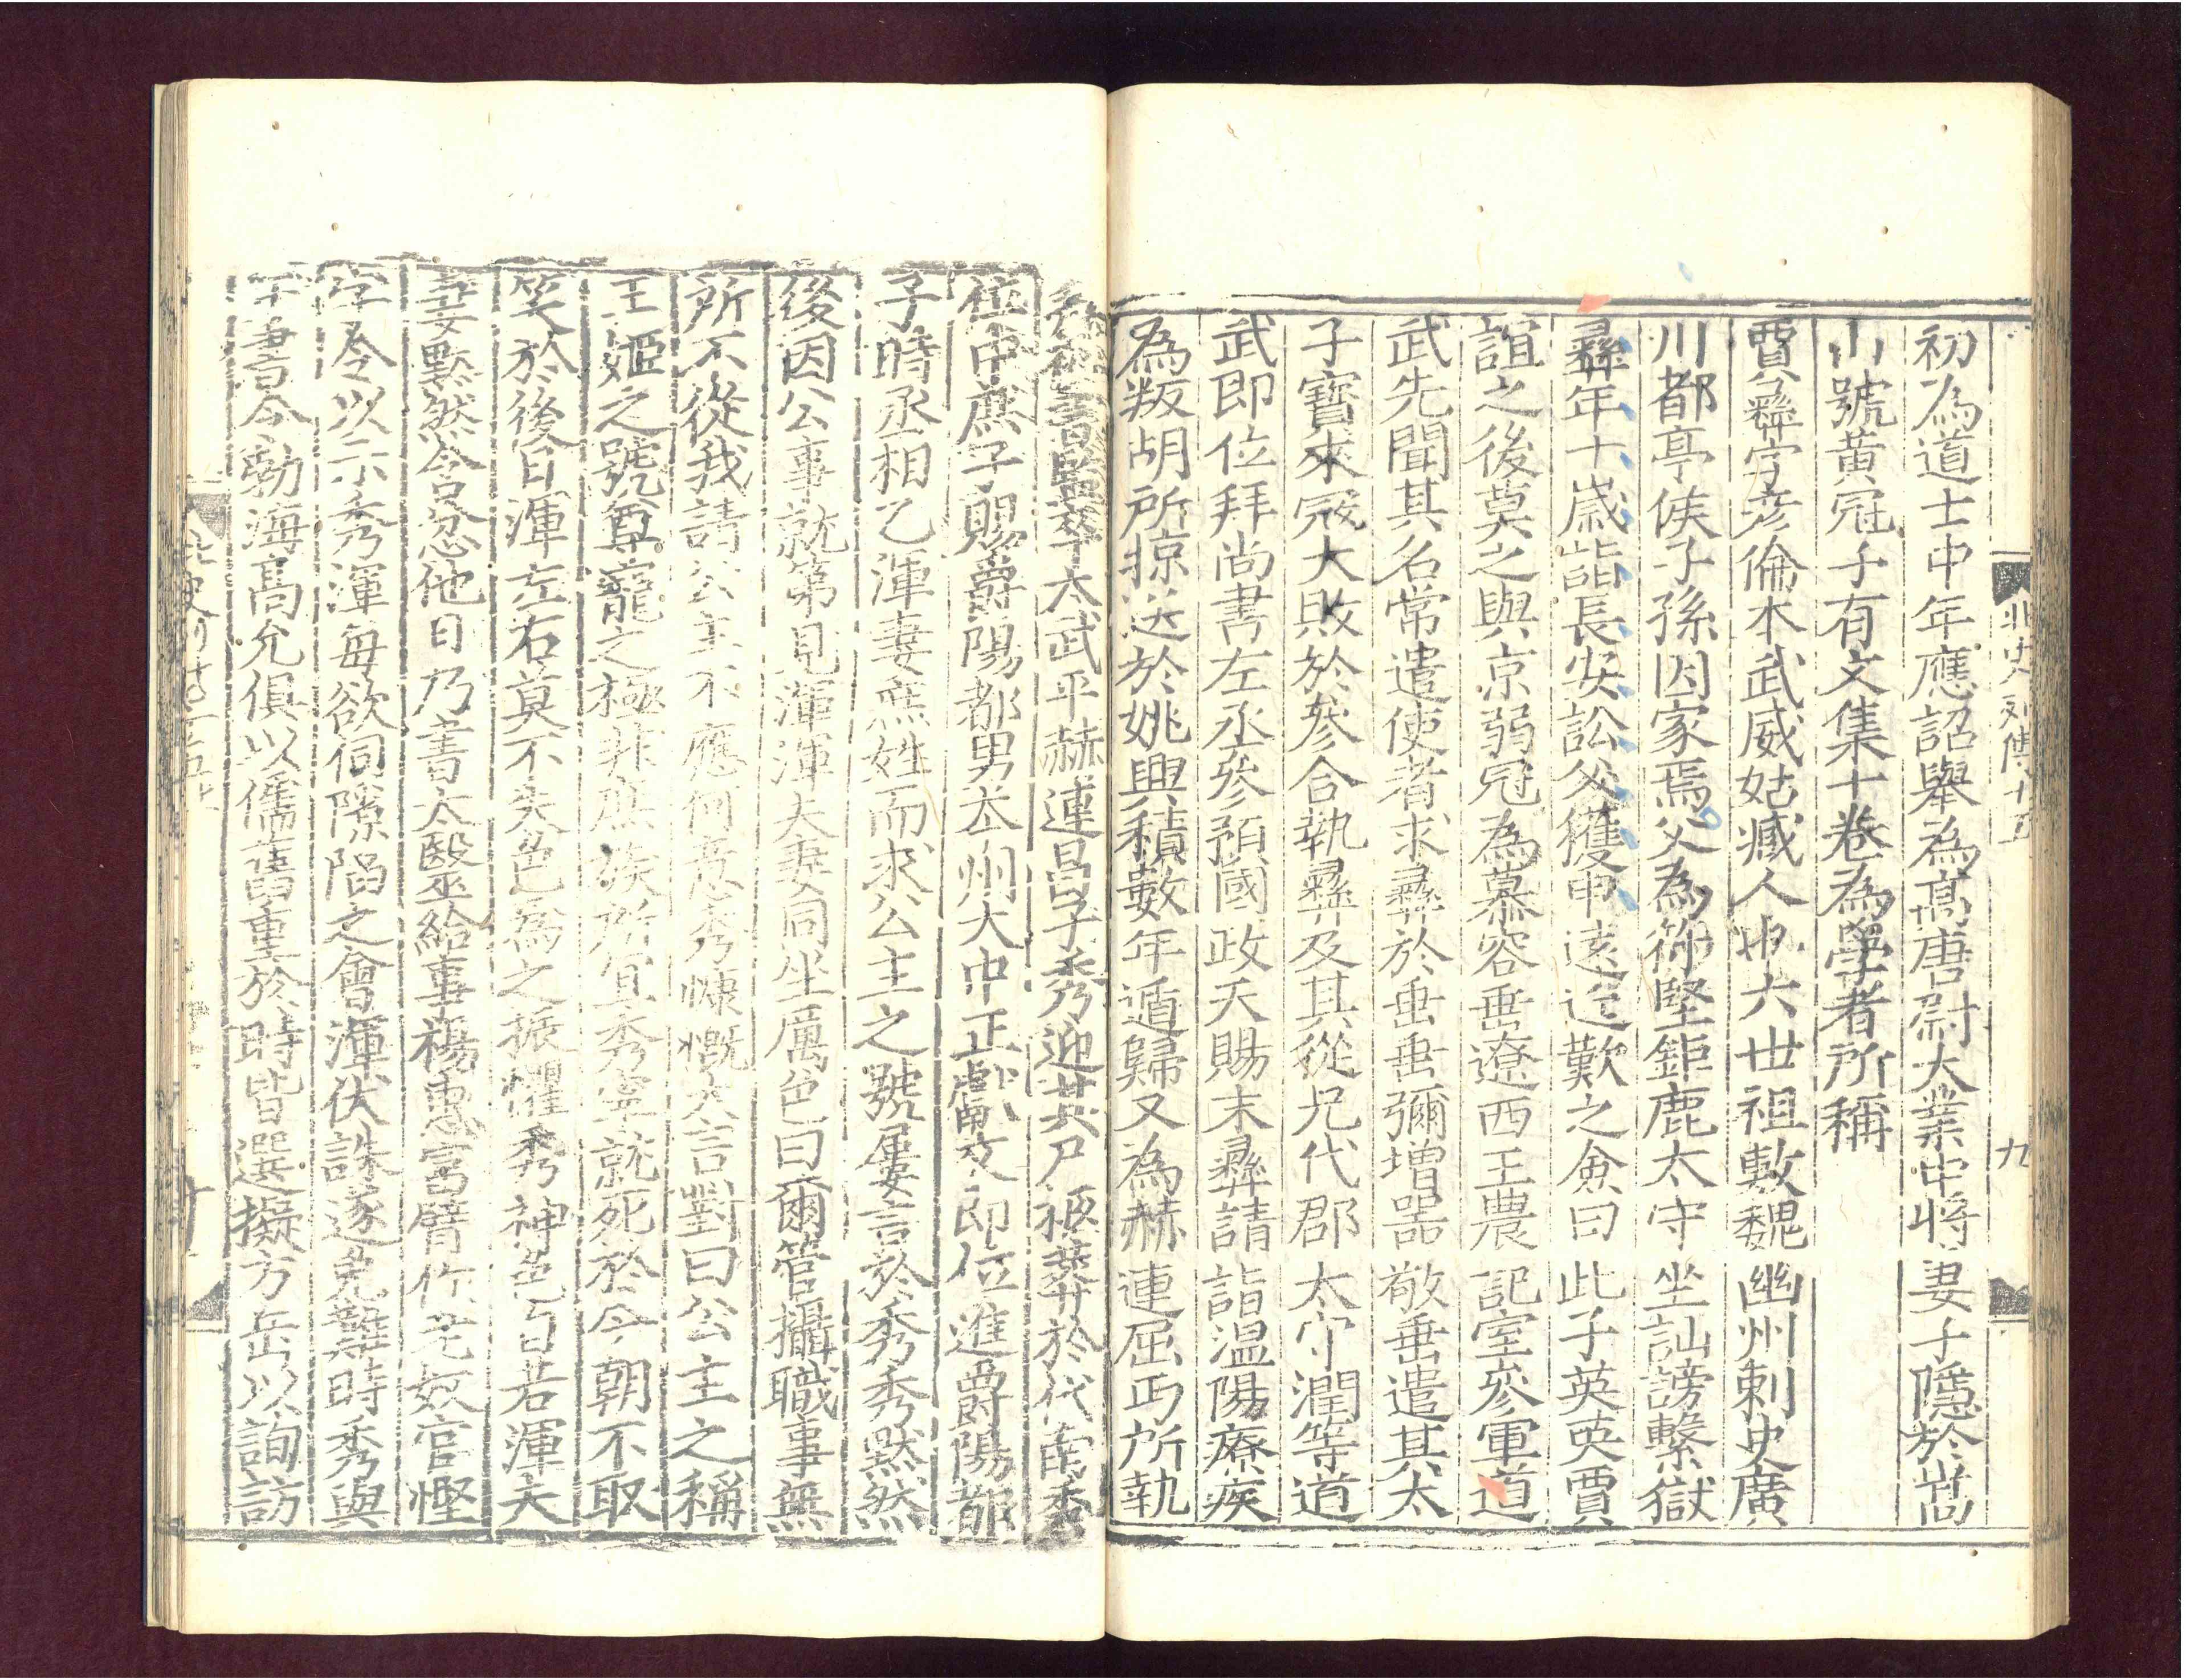 北史列傳十五
九
初為道士中年應詔舉為髙唐尉大業中將妻子隱於嵩
山號黃冠子有文集十卷為學者所稱
賈彞字彦倫本武威姑臧人也六世祖敷魏幽州刺史廣
川都亭侯子孫因家焉父為苻堅鉅鹿太守坐訕謗繫獄
彞年十歲詣長安訟父獲申遠近歎之僉曰此子英英賈
誼之後莫之與京弱冠為慕容垂遼西王農記室參軍道
武先聞其名常遣使者求彞於垂垂彌增器敬垂遣其太
子寳來寇大敗於參合執彞及其從兄代郡太守潤等道
武即位拜尚書左丞參預國政天賜末彞請詣温陽療疾
為叛胡所掠送於姚興積數年遁歸又為赫連屈丐所執
秘書監卒太武平赫連昌子秀迎其尸柩葬於代南秀
位中庶子賜爵陽都男本州大中正獻文即位進爵陽都
子時丞相乙渾妻庶姓而求公主之號屢言於秀秀黙然
後因公事就第見渾渾夫妻同坐厲色曰爾管攝職事無
所不從我請公主不應何意秀慷慨大言對曰公主之稱
王姬之號尊寵之極非庶族所宜秀寧就死於今朝不取
笑於後日渾左右莫不失色為之振懼秀神色自若渾夫
妻黙然含忿他日乃書太醫給事楊惠富臂作老奴官慳
字令以示秀渾每欲伺隙陷之會渾伏誅遂免難時秀與
中書令勃海髙允俱以儒舊重於時皆選擬方岳以詢訪